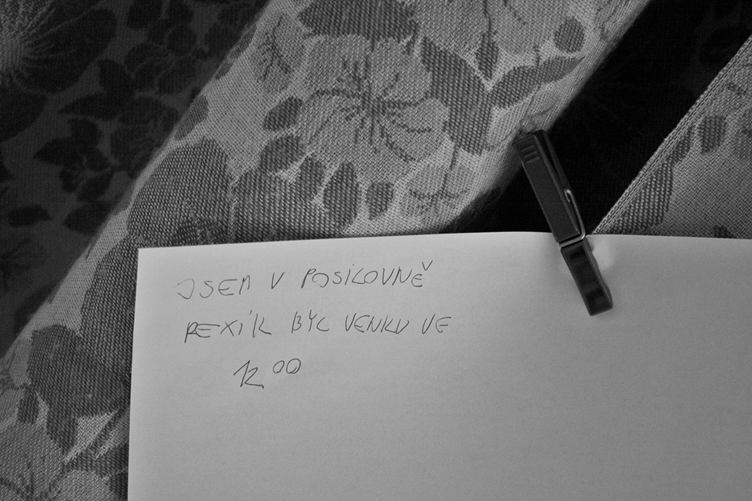 JSEM V POSILOVNĚ
REXÍK BYL VENKU VE
12 00